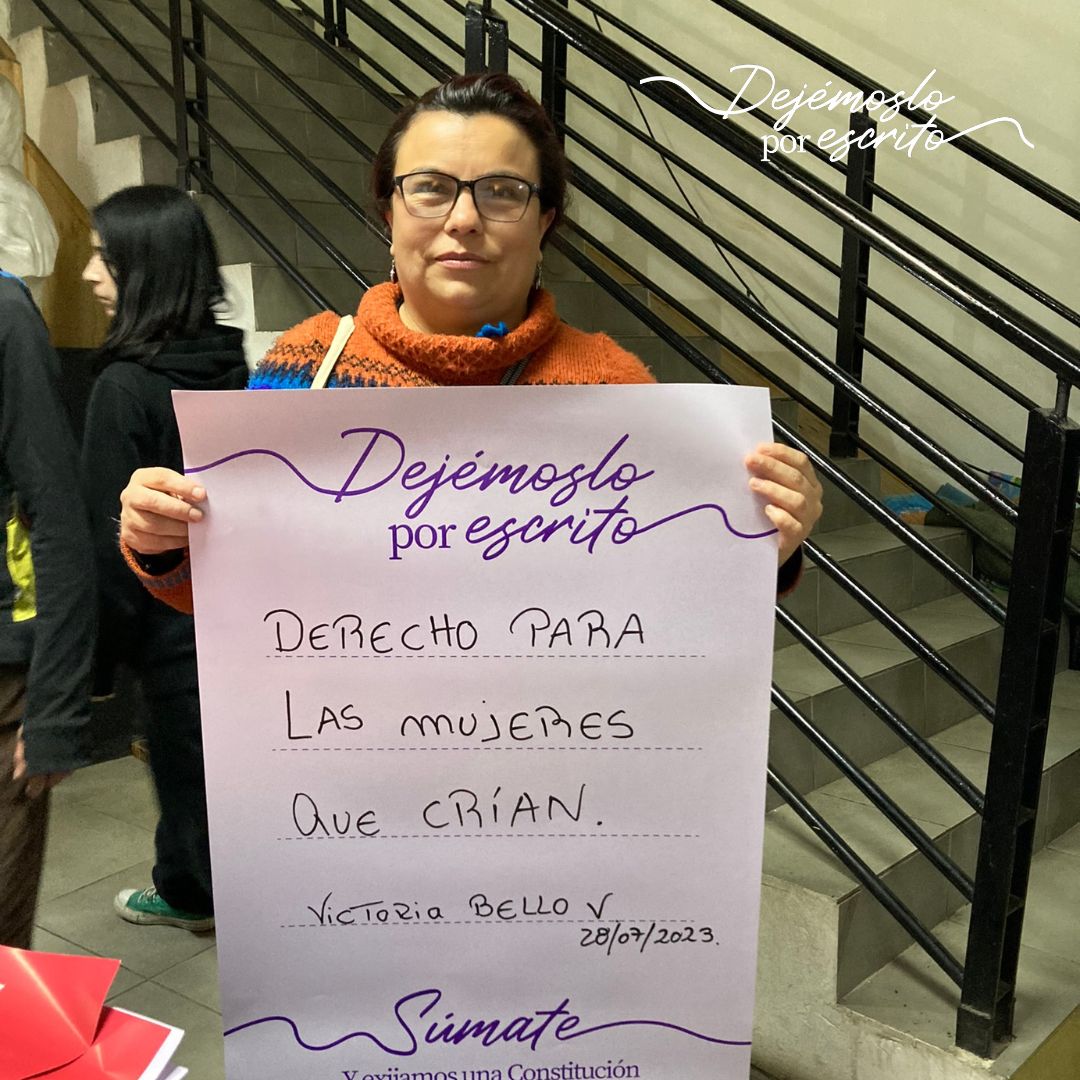 Dejémoslo
por escrito
Dejémoslo
por escrito
DERECHO PARA
LAS MUJERES
QUE CRÍAN.
VICTORIA BELLO V.
28/07/2023.
Súmate
Y exijamos una Constitución